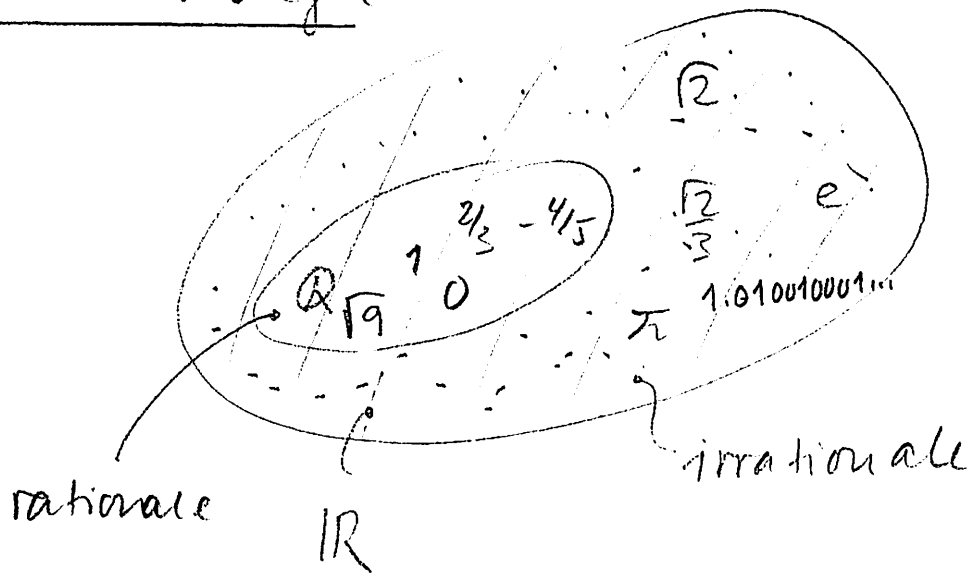 √2
2/3 - 4/5
√2/3
e
1
Q √9 0
π 1.010010001...
irrationale
rationale
IR